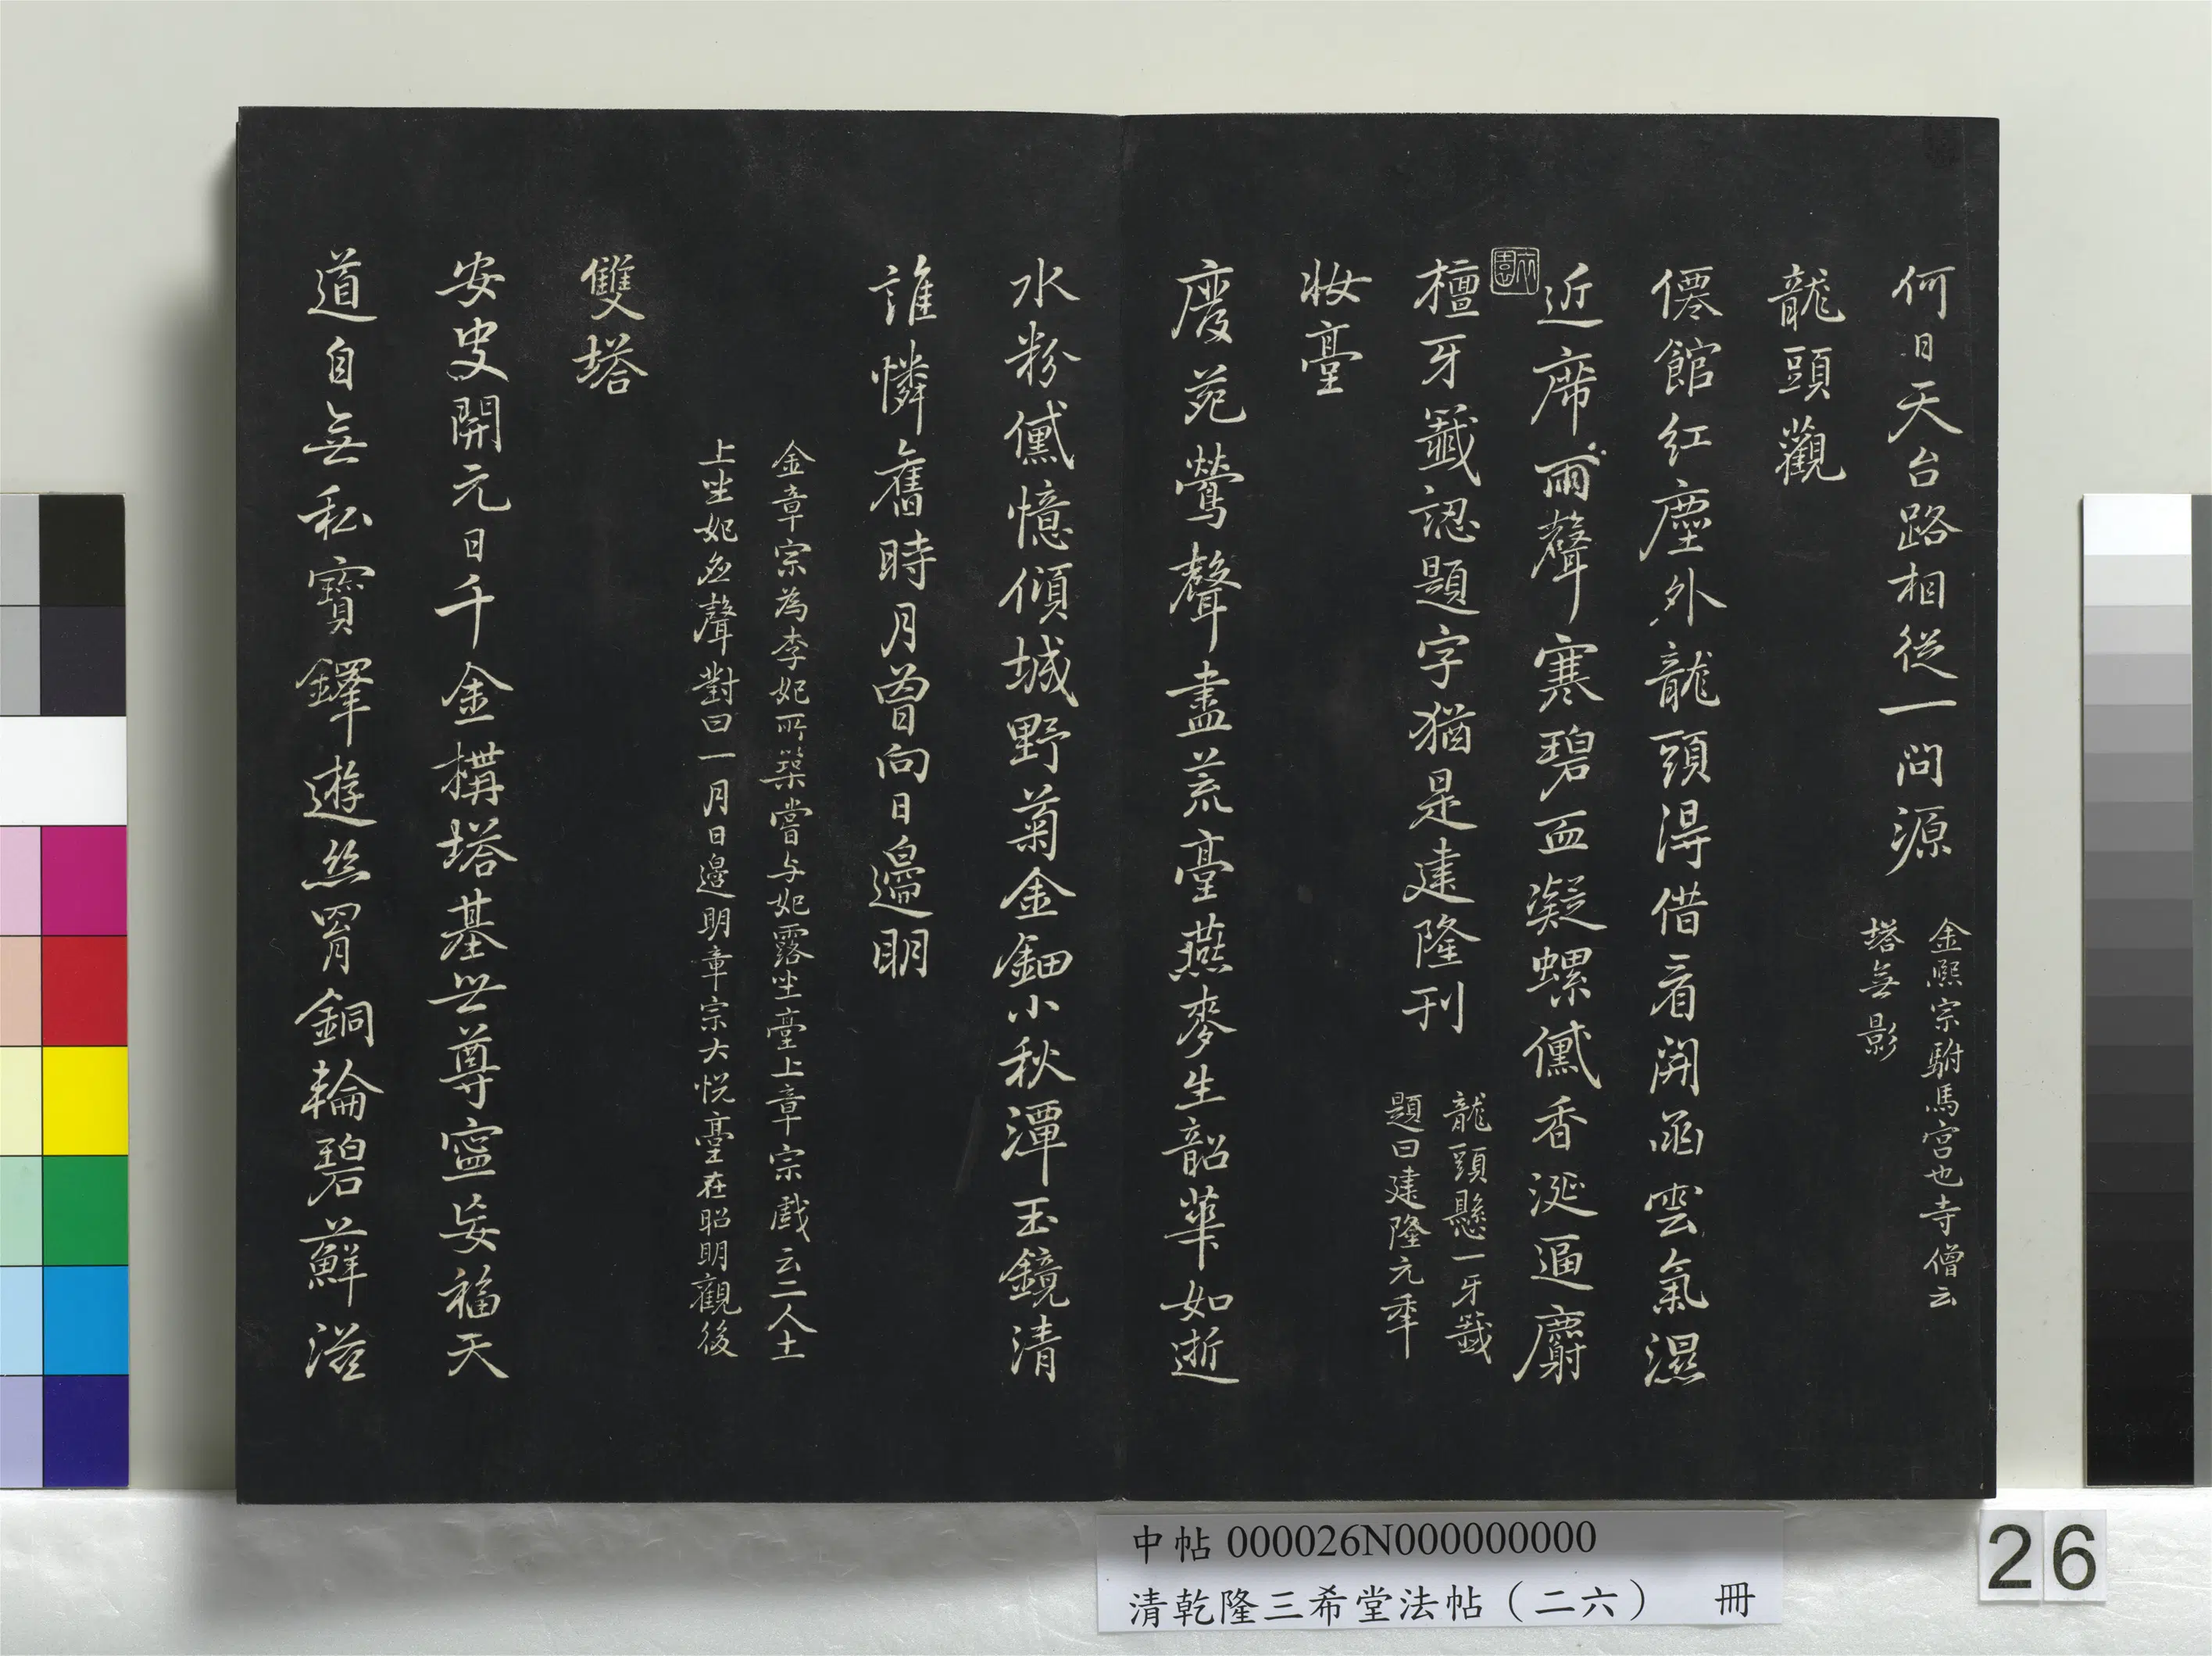 何日天台路相從一問源
金熙宗駙馬宮也寺僧云
塔無影
龍頭觀
僊館紅塵外龍頭得借看開函雲氣濕
近席雨聲寒碧血凝螺儻香涎逼麝
檀牙籤認題字猶是建隆刊
龍頭懸一牙籤
題曰建隆元年
妝臺
廢苑鶯聲盡荒臺燕麥生韶華如逝
水粉儻憶傾城野菊金鈿小秋潭玉鏡清
誰憐舊時月曾向日邊明
金章宗為李妃所築嘗与妃露坐臺上章宗戲云二人土
上坐妃應聲對曰一月日邊明章宗大悅臺在昭明觀後
雙塔
安史開元日千金構塔基世尊寧妄福天
道自無私寶鐸遊絲罥銅輪碧蘚滋
中帖 000026N000000000
清乾隆三希堂法帖(二六) 冊
26